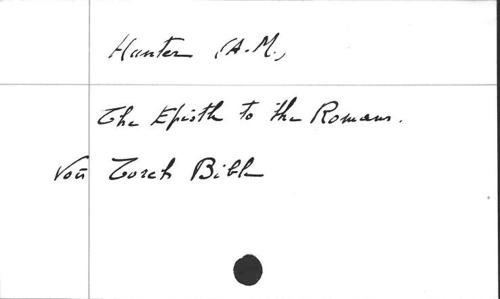 Hunter (A.M.)
The Epistle to the Romans.
Voir Torch Bible